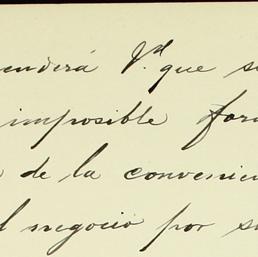 enderá Vd. que s
imposible for
de la convenien
l negocio por s